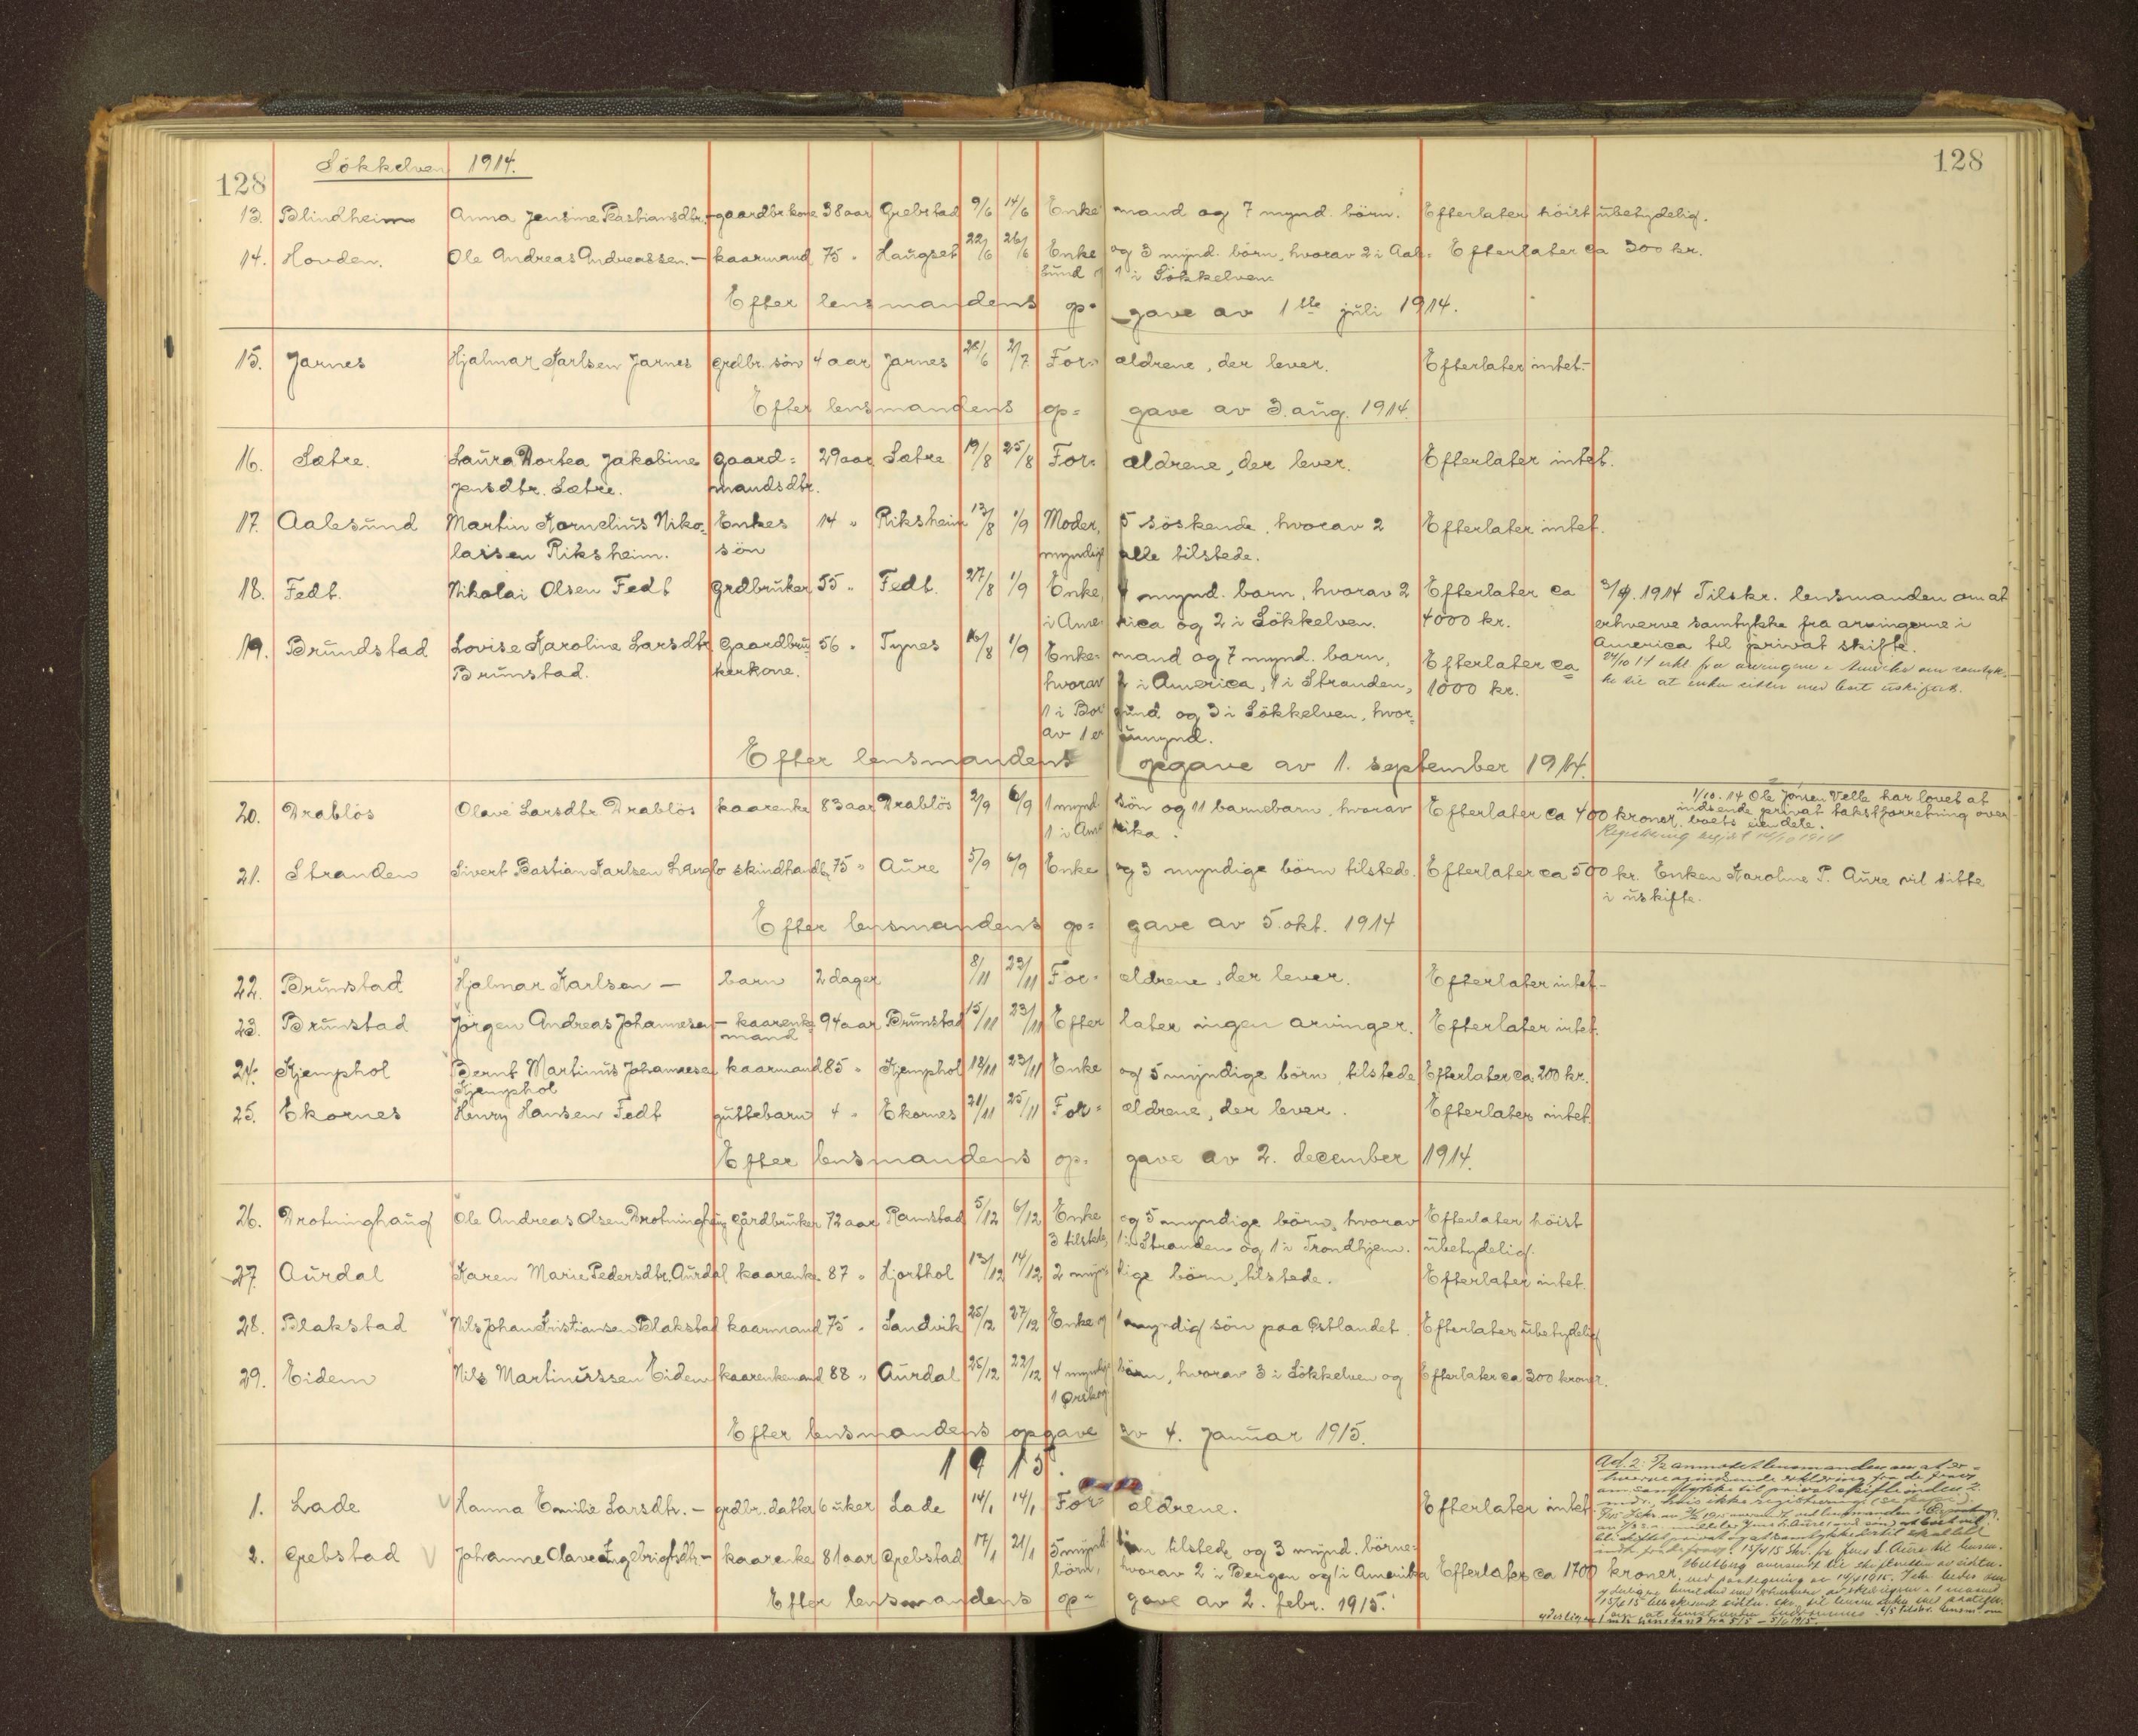 128
Sökkelven 1914.
128
13. Blindheim Anna Jensine Bastiansdtr. - gaardbr. kone 38 aar Grebstad 9/6 14/6 Enke mand og 7 mynd. börn. Efterlater höist ubetydelig.
14. Hovden. Ole Andreas Andreassen. - kaarmand 75 " Haugset 22/6 26/6 Enke og 3 mynd. börn, hvorav 2 i Aale= Efterlater ca 300 kr.
sund og 1 i Sökkelven.
Efter lensmandens op= gave av 1ste juli 1914.
15. Jarnes Hjalmar Karlsen Jarnes grdbr. sön 4 aar Jarnes 26/6 2/7 For= ældrene, der lever. Efterlater intet.-
Efter lensmandens op= gave av 3. aug. 1914.
16. Sætre. Laura Dortea Jakobine gaard= 29 aar Sætre 19/8 25/8 For= ældrene, der lever. Efterlater intet.
Jensdtr. Sætre. mandsdtr.
17. Aalesund Martin Kornelius Niko= Enkes 14 " Riksheim 13/8 1/9 Moder, 5 söskende, hvorav 2 Efterlater intet.
laisen Riksheim. sön myndige alle tilstede.
18. Fedt. Nikolai Olsen Fedt grdbruker 55 " Fedt. 27/8 1/9 Enke, 4 mynd. barn, hvorav 2 Efterlater ca 3/9. 1914 Tilskr. lensmanden om at
i Ame= rica og 2 i Sökkelven. 4000 kr. erhverve samtykke fra arvingerne i
America til privat skifte.
19. Brundstad Lovise Karoline Larsdtr. Gaardbru= 56 " Tynes 16/8 1/9 Enke= mand og 7 mynd. barn, Efterlater ca
Brunstad. kerkone. hvorav 2 i America, 1 i Stranden, 1000 kr.
1 i Bor gund og 3 i Sökkelven, hvor=
av 1 er umynd.
Efter lensmandens opgave av 1. september 1914.
1/10. 14 Ole Jonsen Velle har lovet at
20. Drablös Olave Larsdtr. Drablös kaarenke 83 aar Drablös 2/9 6/9 1 mynd. sön og 11 barnebarn, hvorav Efterlater ca 400 kroner. indsende privat takstforretning over
1 i Ame rika. boets eiendele.
21. Stranden Sivert Bastian Karlsen Langlo skindhandl. 75 " Aure 5/9 6/9 Enke og 3 myndige börn tilstede. Efterlater ca 500 kr. Enken Karoline P. Aure vil sitte
i uskifte.
Efter lensmandens op= gave av 5. okt. 1914
22. Brunstad Hjalmar Karlsen - barn 2 dager 8/11 23/11 For= ældrene, der lever. Efterlater intet.-
23. Brunstad Jörgen Andreas Johannesen - kaarenke 94 aar Brunstad 15/11 23/11 Efter later ingen arvinger. Efterlater intet.
mand
24. Kjemphol Bernt Martinus Johannesen kaarmand 85 " Kjemphol 18/11 23/11 Enke og 5 myndige börn, tilstede Efterlater ca 200 kr.
Kjemphol
25. Ekornes Henry Hansen Fedt guttebarn 4 " Ekornes 21/11 25/11 For= ældrene, der lever. Efterlater intet.
Efter lensmandens op= gave av 2. december 1914.
26. Drotninghaug Ole Andreas Olsen Drotninghaug Gårdbruker 72 aar Ramstad 5/12 6/12 Enke og 5 myndige börn, hvorav Efterlater höist
3 tilstede, 1 i Stranden og 1 i Trondhjem. ubetydelig.
27. Aurdal Karen Marie Pedersdtr. Aurdal kaarenke 87 " Hjorthol 13/12 14/12 2 myn dige börn, tilstede. Efterlater intet.
28. Blakstad Nils Johan Kristiansen Blakstad kaarmand 75 " Sandvik 25/12 27/12 Enke og 1 myndig sön paa Östlandet. Efterlater ubetydelig
29. Eidem Nils Martinussen Eidem kaarenkemand 88 " Aurdal 25/12 22/12 4 myndige börn, hvorav 3 i Sökkelven og Efterlater ca 300 kroner.
1 Örskog
Efter lensmandens opgave av 4. Januar 1915.
1915.
1. Lade Hanna Emilie Larsdtr. - grdbr. datter 6 uker Lade 14/1 14/1 For= ældrene. Efterlater intet.
2. Grebstad Johanne Olave Ingebrigtsdtr. - kaarenke 81 aar Grebstad 17/1 21/1 5 mynd. börn tilstede og 3 mynd. börne=
börn, hvorav 2 i Bergen og 1 i Amerika Efterlater ca 1700 kroner.
Efter lensmandens op= gave av 2. febr. 1915.